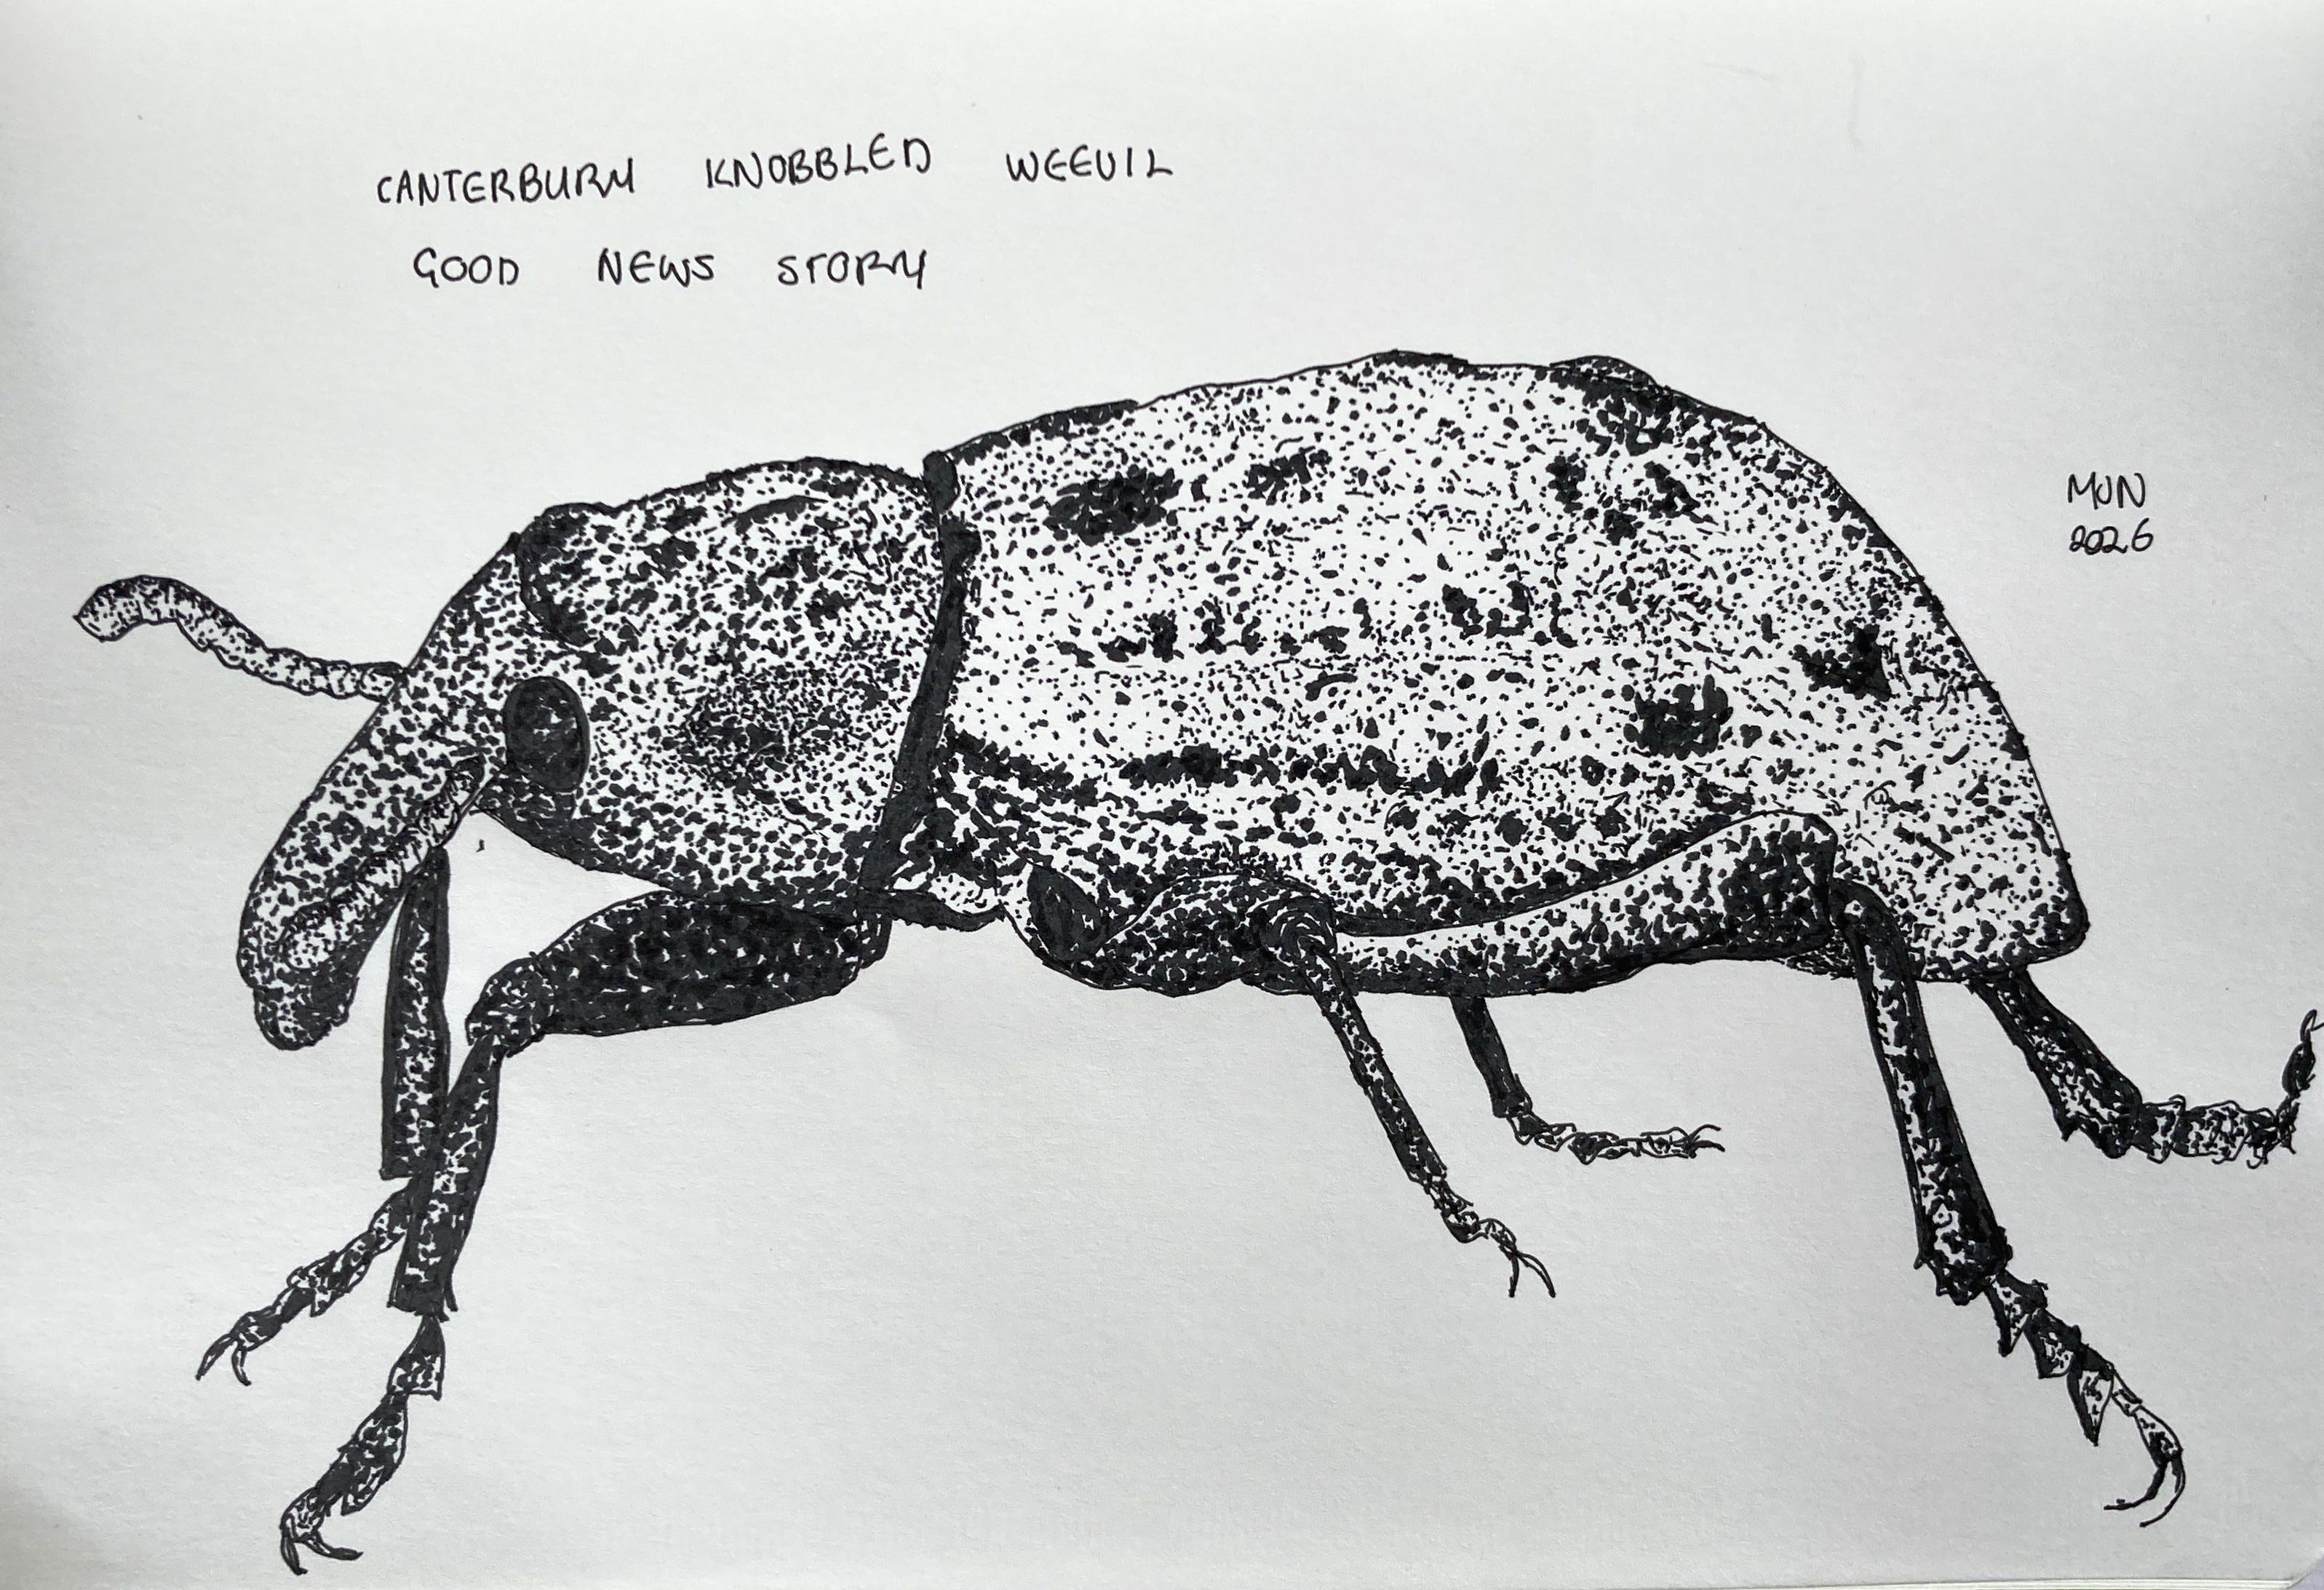 CANTERBURY KNOBBLED WEEVIL
GOOD NEWS STORY
MJN
2026